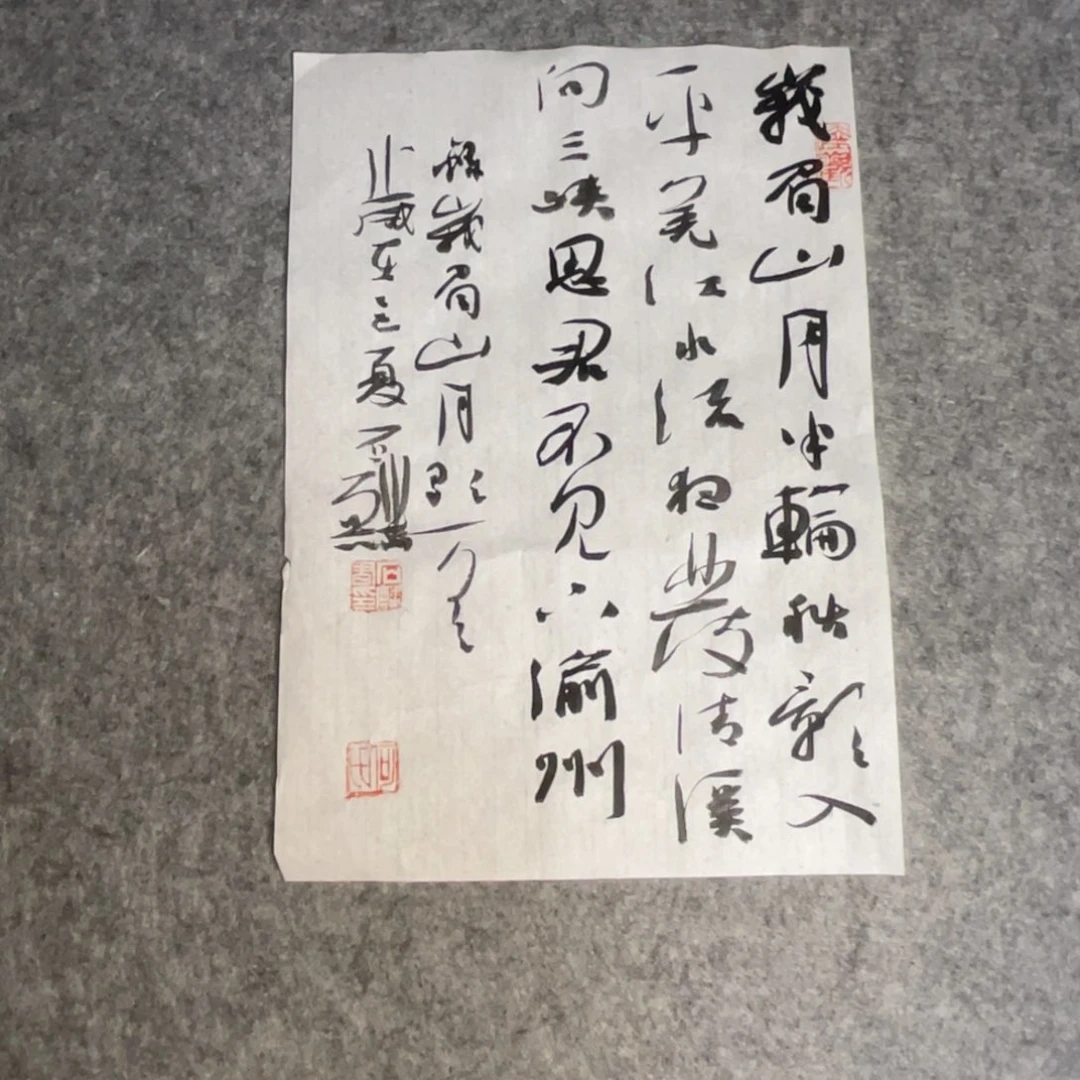 峩眉山月半輪秋影入
平羌江水流夜發清溪
向三峽思君不見下渝州
錄峩眉山月歌一首
歲在之夏